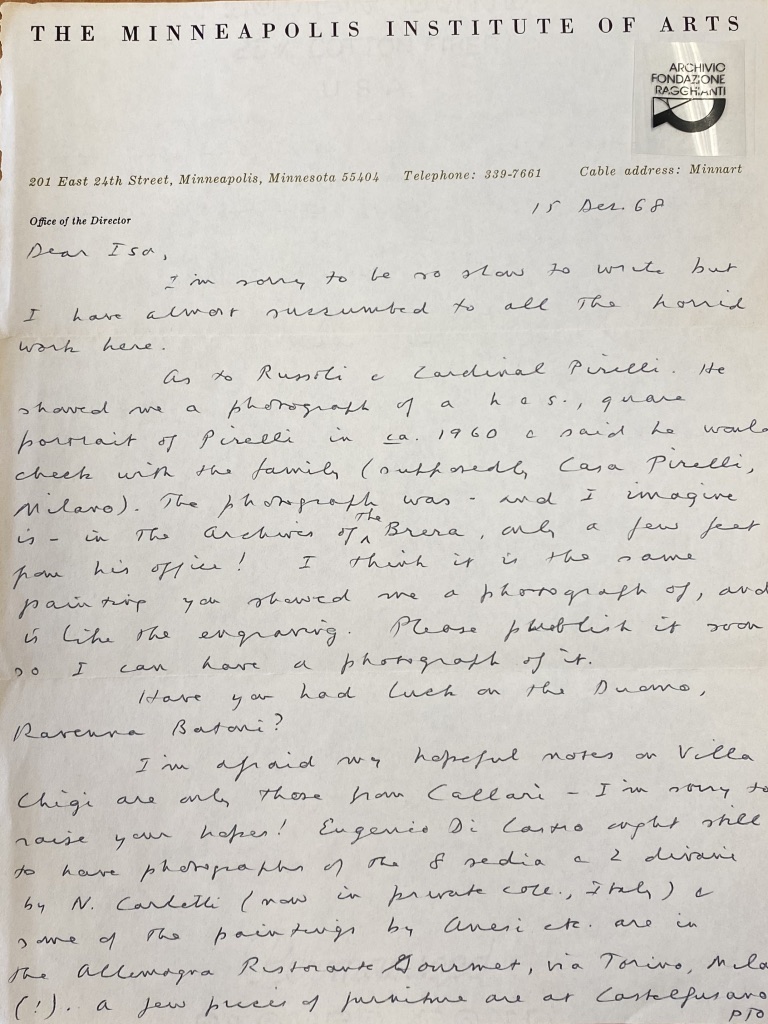 THE MINNEAPOLIS INSTITUTE OF ARTS
ARCHIVIO
FONDAZIONE
RAGGHIANTI
201 East 24th Street, Minneapolis, Minnesota 55404 Telephone: 339-7661 Cable address: Minnart
Office of the Director
15 Dec. 68
Dear Isa,
I'm sorry to be so slow to write but
I have almost succumbed to all the horrid
work here.
As to Russoli & Cardinal Pirelli. He
showed me a photograph of a h & s.,
portrait of Pirelli in ca. 1960 & said he would
check with the family (supposedly Casa Pirelli,
Milano). The photograph was - and I imagine
is - in the Archives of the Brera, only a few feet
from his office! I think it is the same
painting you showed me a photograph of, and
is like the engraving. Please publish it soon
so I can have a photograph of it.
Have you had luck on the Duomo,
Ravenna Batoni?
I'm afraid my hopeful notes on Villa
Chigi are only those from Callari - I'm sorry to
raise your hopes! Eugenio Di Castro ought still
to have photographs of the 8 sedia & 2 divani
by N. Carletti (now in private coll., Italy) &
some of the paintings by Anesi etc. are in
the Allemagna Ristorante Gourmet, via Torino, Mila
(!). a few pieces of furniture are at Castelfusano
PTO